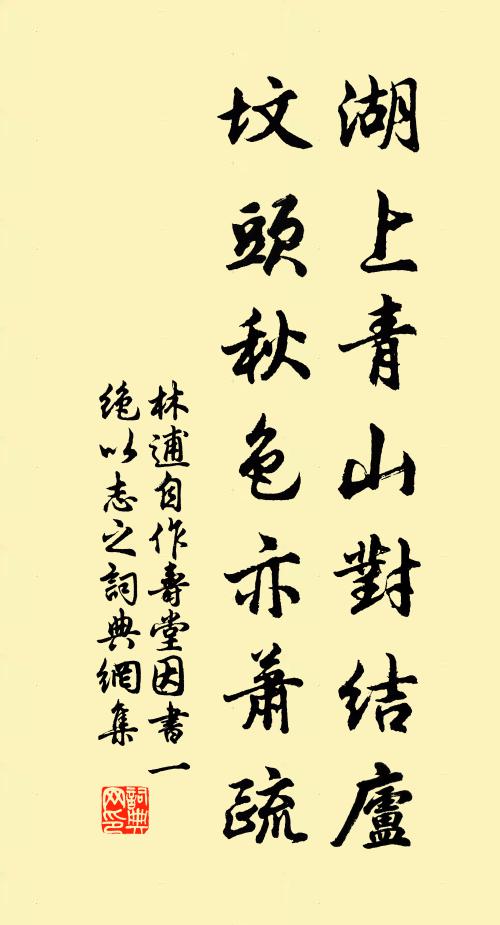 湖上青山對結廬
墳頭秋色亦蕭疏
林逋自作壽堂因書一
絶以志之詞典網集
詞典
网印